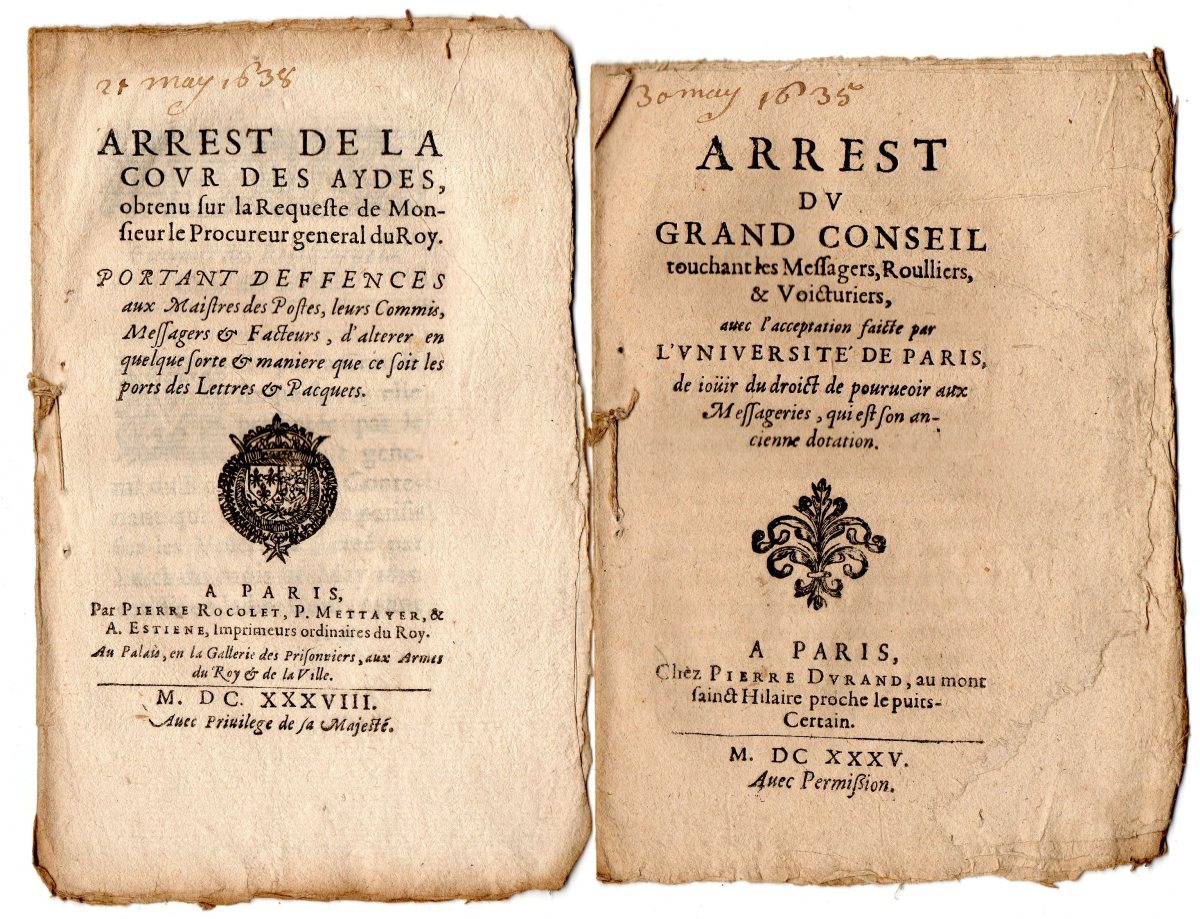 21 may 1638
ARREST DE LA
COVR DES AYDES,
obtenu ſur la Requeſte de Mon-
ſieur le Procureur general du Roy.
PORTANT DEFFENCES
aux Maiſtres des Poſtes, leurs Commis,
Meſſagers & Facteurs, d'alterer en
quelque ſorte & maniere que ce ſoit les
ports des Lettres & Pacquets.
A PARIS,
Par PIERRE ROCOLET, P. METTAYER, &
A. ESTIENE, Imprimeurs ordinaires du Roy.
Au Palais, en la Gallerie des Priſonniers, aux Armes
du Roy & de la Ville.
M. DC. XXXVIII.
Auec Priuilege de ſa Majeſté.
30 may 1635
ARREST
DV
GRAND CONSEIL
touchant les Meſſagers, Roulliers,
& Voicturiers,
auec l'acceptation faicte par
L'VNIVERSITÉ DE PARIS,
de ioüir du droict de pourueoir aux
Meſſageries, qui eſt ſon an-
cienne dotation.
A PARIS,
Chez PIERRE DVRAND, au mont
ſainct Hilaire proche le puits-
Certain.
M. DC XXXV.
Auec Permiſſion.